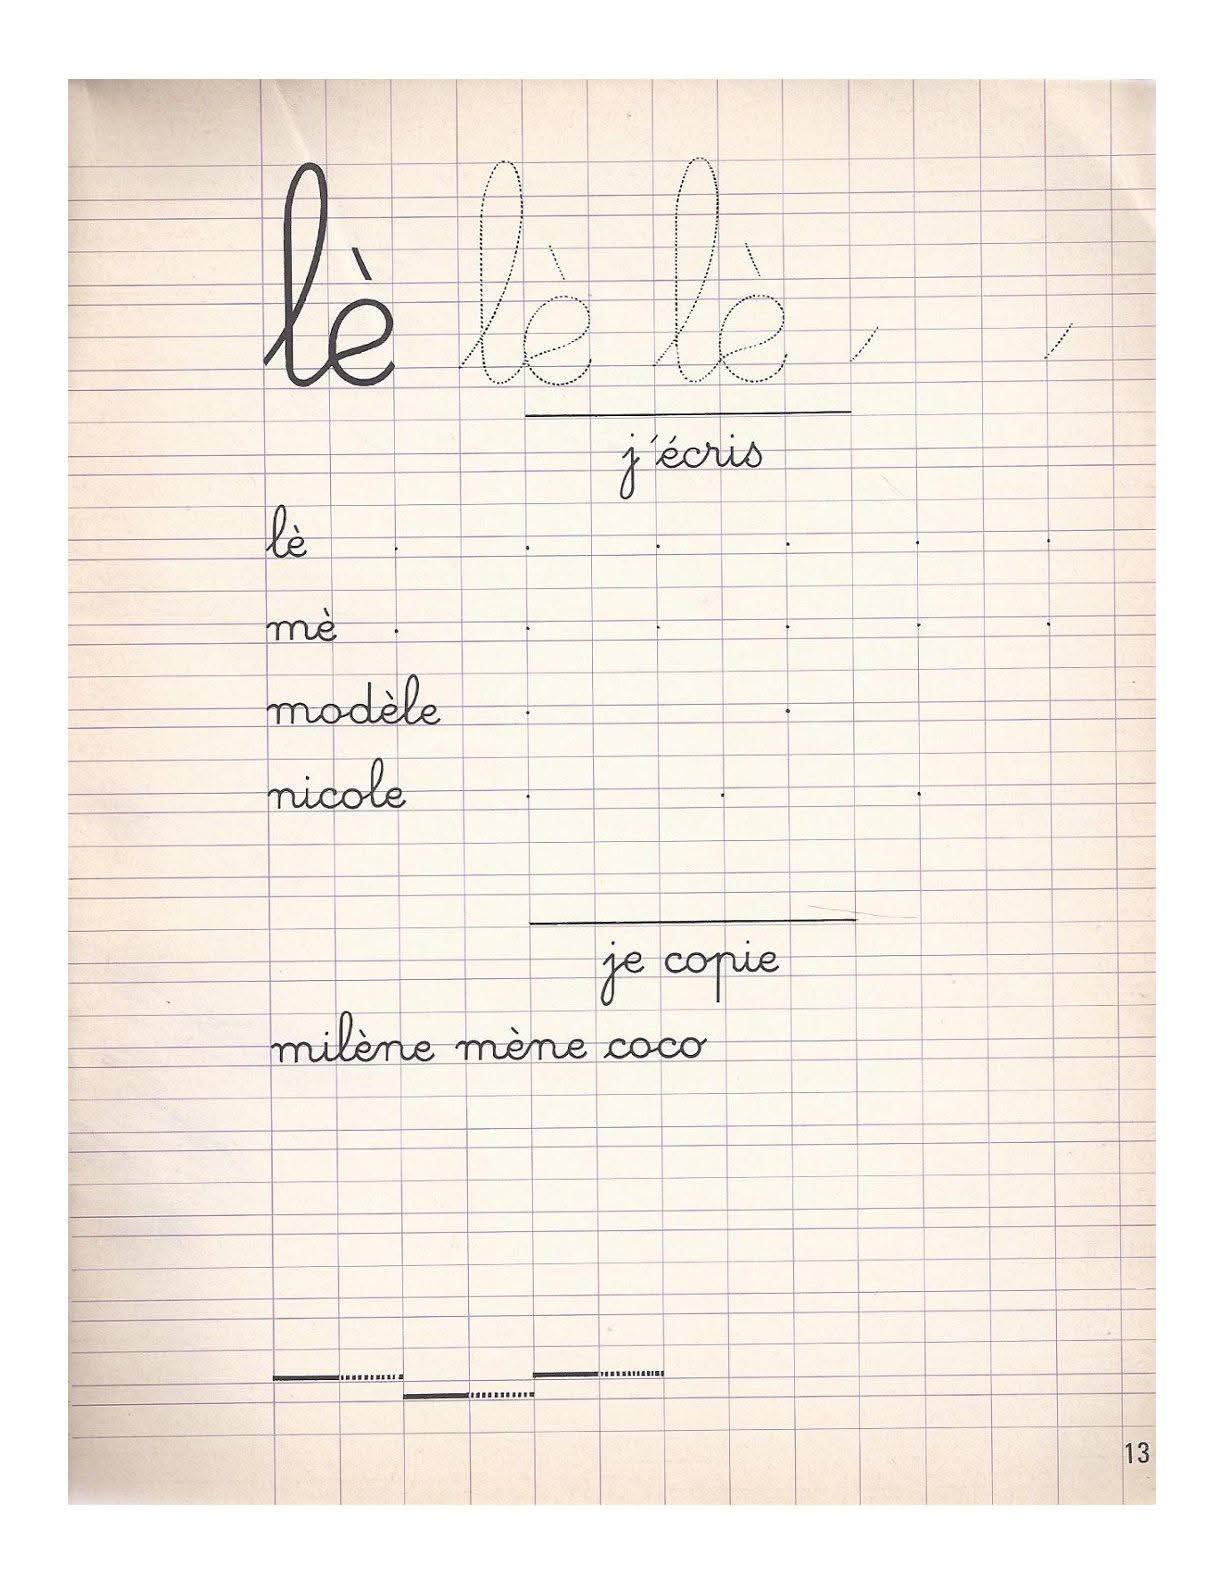 lè lè lè
j'écris
lè
mè
modèle
nicole
je copie
milène mène coco
13